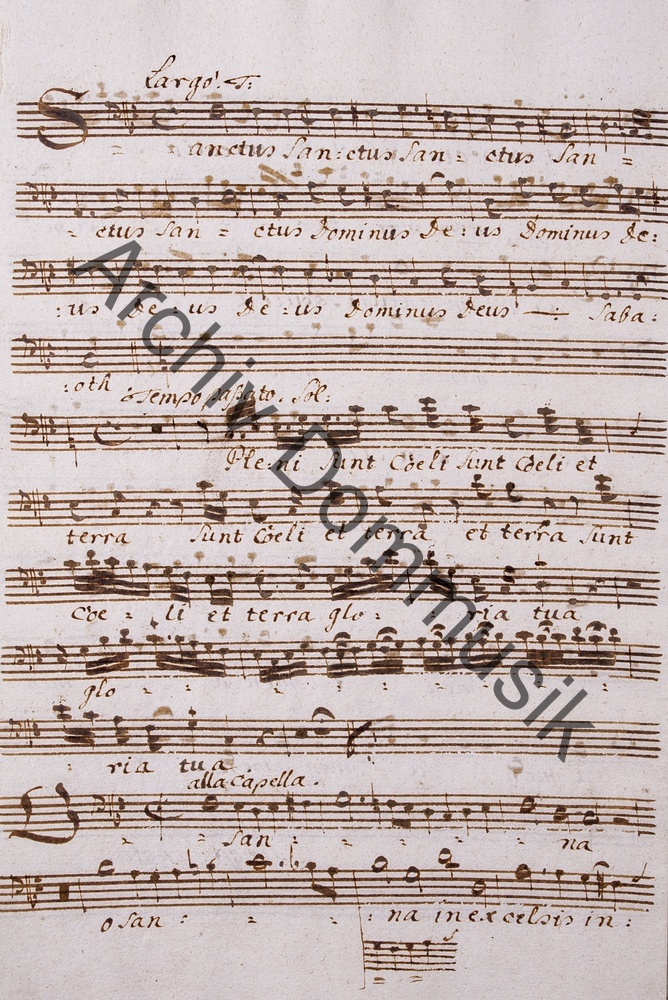 Largo. T:
Sanctus San: ctus San: ctus San =
- ctus San = ctus Dominus De: us Dominus De:
: us De: us De: us Dominus Deus Saba:
: oth Tempo passato. Sol:
Ple: ni Sunt Coeli Sunt Coeli et
terra Sunt Coeli et terra et terra Sunt
Coe - li et terra glo: ria tua
glo - - - - - - - -
: ria tua.
alla Capella.
O - - San - - - - na
o San: - - : na in excelsis in:
Archiv Dommusik